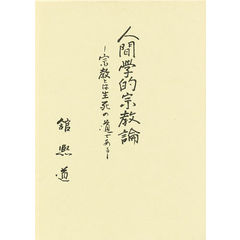 人間學的宗教論
―宗教とは生死の道である―
舘熙道